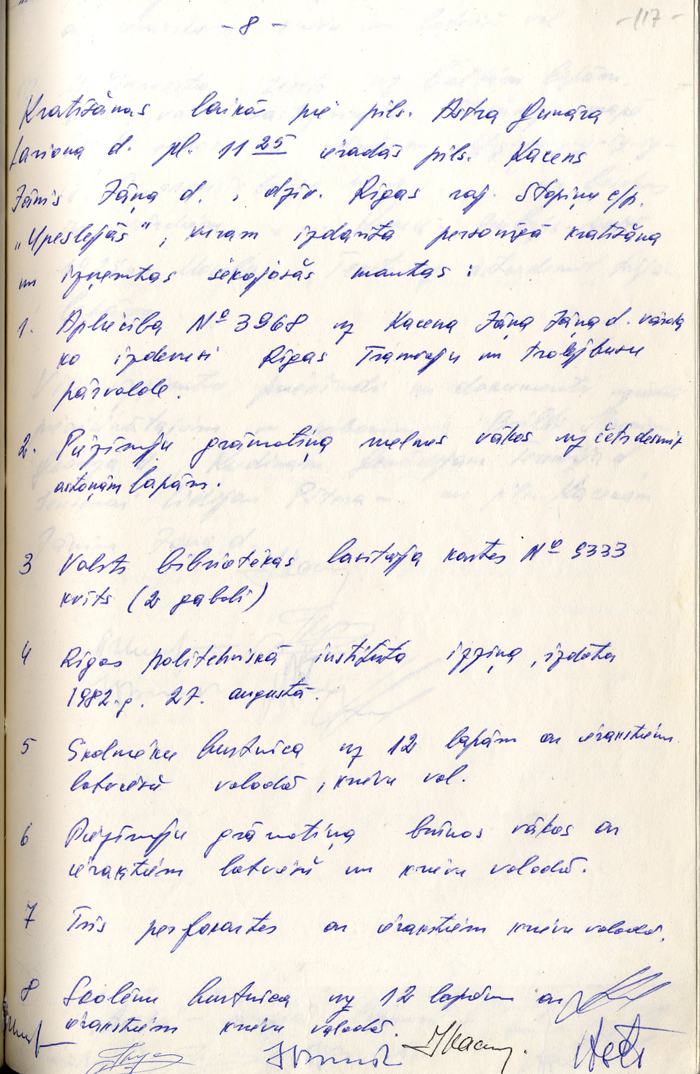 - 8 -
-117-
Kratīšanas laikā pie pils. Astra Gunāra
Lariona d. pl. 11 25 ieradās pils. Kacens
Jānis Jāņa d., dzīv. Rīgas raj. Stopiņu c/p.
"Upeslejās", viņam izdarīta personīgā kratīšana
un izņemtas sekojošās mantas:
1. Apliecība Nº 3968 uz Kacena Jāņa Jāņa d. vārda
ko izdevusi Rīgas Tramvaju un trolejbusu
pārvalde.
2. Piezīmju grāmatiņa melnos vākos uz četrdesmit
astoņām lapām.
3 Valsts bibliotēkas lasītāja kartes Nº 9333
kvīts (2 gabali)
4 Rīgas politehniskā institūta izziņa, izdota
1982.g. 27. augustā.
5 Skolnieku burtnīca uz 12 lapām ar ierakstiem
latviešu valodā, krievu val.
6 Piezīmju grāmatiņa brūnos vākos ar
ierakstiem latviešu un krievu valodā.
7 Trīs perfokartes ar ierakstiem krievu valodā.
8 Skolēnu burtnīca uz 12 lapām ar
ierakstiem krievu valodā.
JKacen